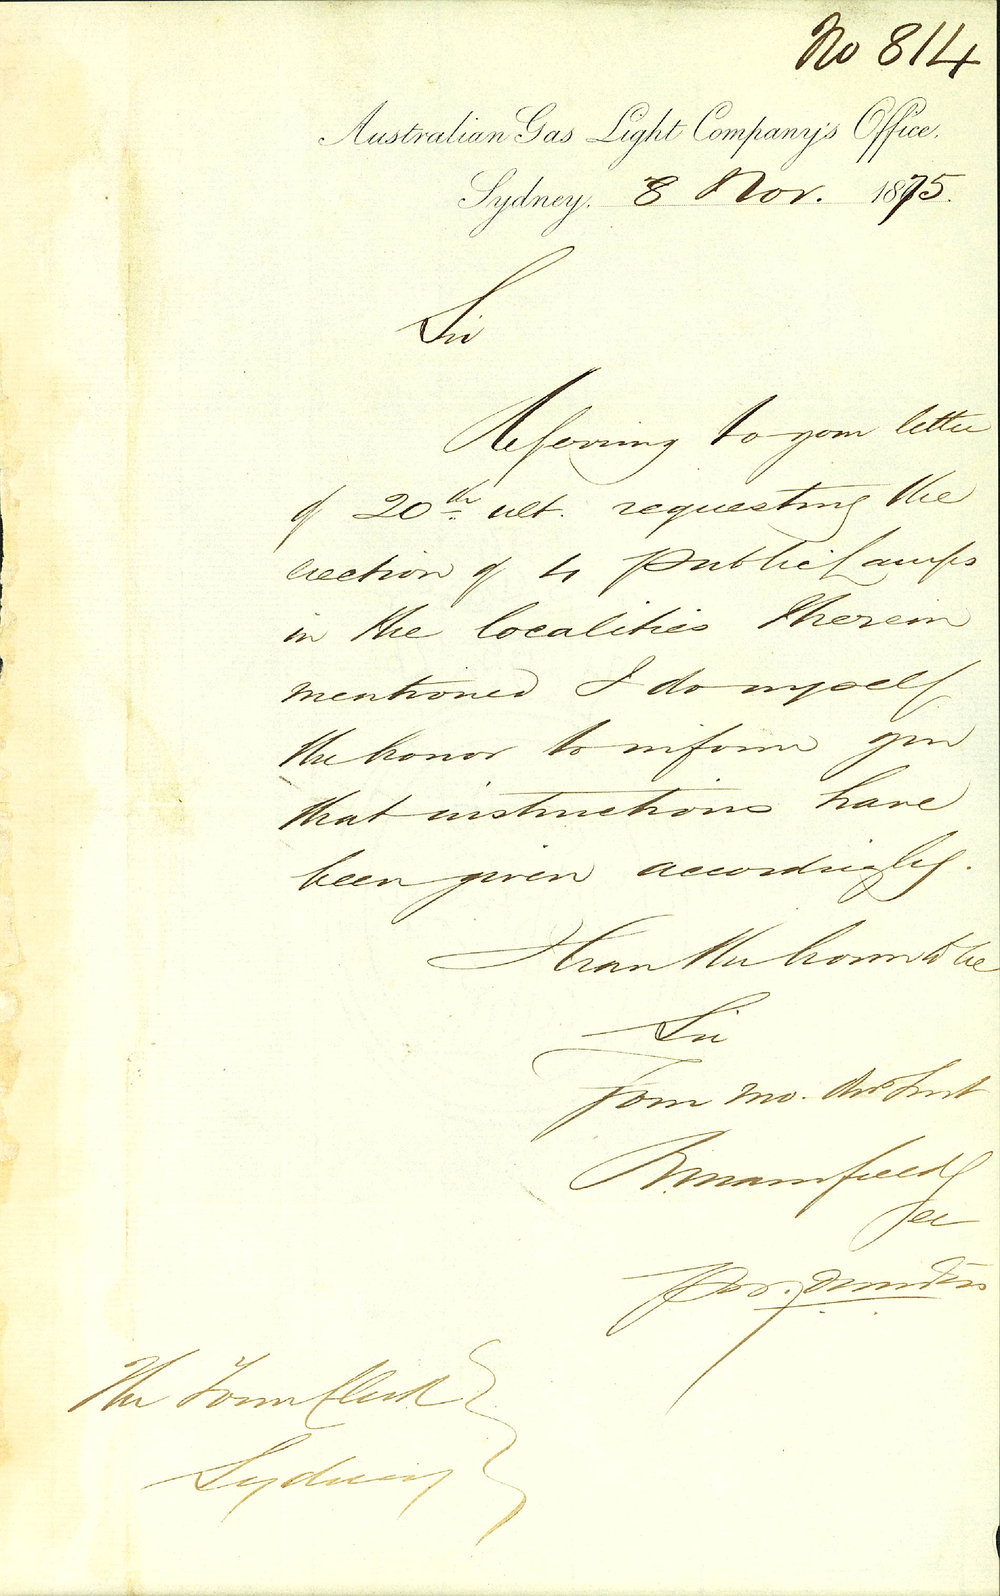 No 814
Australian Gas Light Company's Office.
Sydney. 8 Nov. 1875.
Sir
Referring to your letter
of 20th ult. requesting the
erection of 4 Public Lamps
in the localities therein
mentioned I do myself
the honor to inform you
that instructions have
been given accordingly.
I have the honor to be
Sir
Your mo. obt Servt
R Mansfield
Sec
The Town Clerk
Sydney